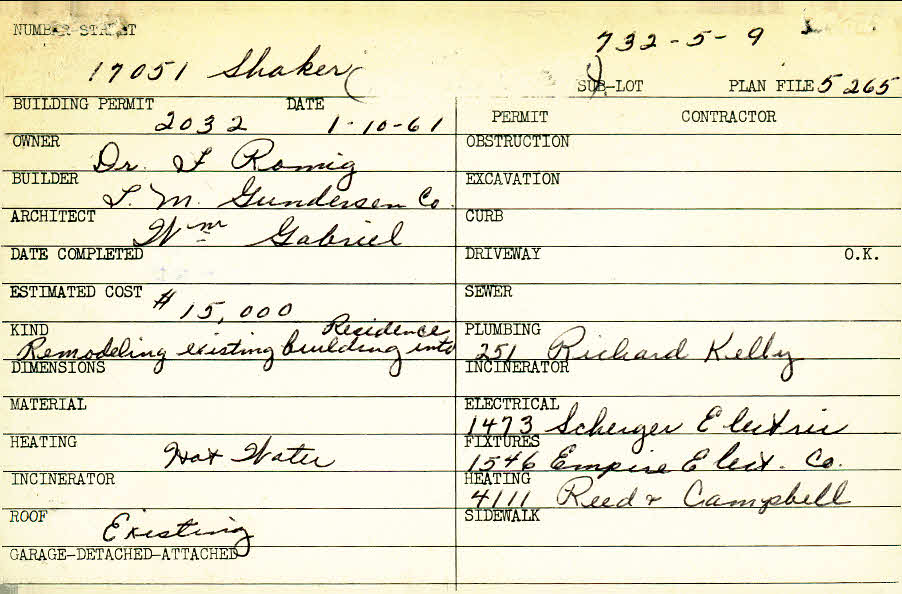 NUMBER STREET
17051 Shaker
732-5-9
SUB-LOT PLAN FILE 5265
BUILDING PERMIT DATE
2032 1-10-61
OWNER Dr. F Romig
BUILDER L. M. Gundersen Co.
ARCHITECT Wm Gabriel
DATE COMPLETED
ESTIMATED COST $15,000
KIND Residence
Remodeling existing building into
DIMENSIONS
MATERIAL
HEATING Hot Water
INCINERATOR
ROOF Existing
GARAGE-DETACHED-ATTACHED
PERMIT CONTRACTOR
OBSTRUCTION
EXCAVATION
CURB
DRIVEWAY O.K.
SEWER
PLUMBING
251 Richard Kelly
INCINERATOR
ELECTRICAL
1473 Scherger Electric
FIXTURES
1546 Empire Elect. Co.
HEATING
4111 Reed & Campbell
SIDEWALK